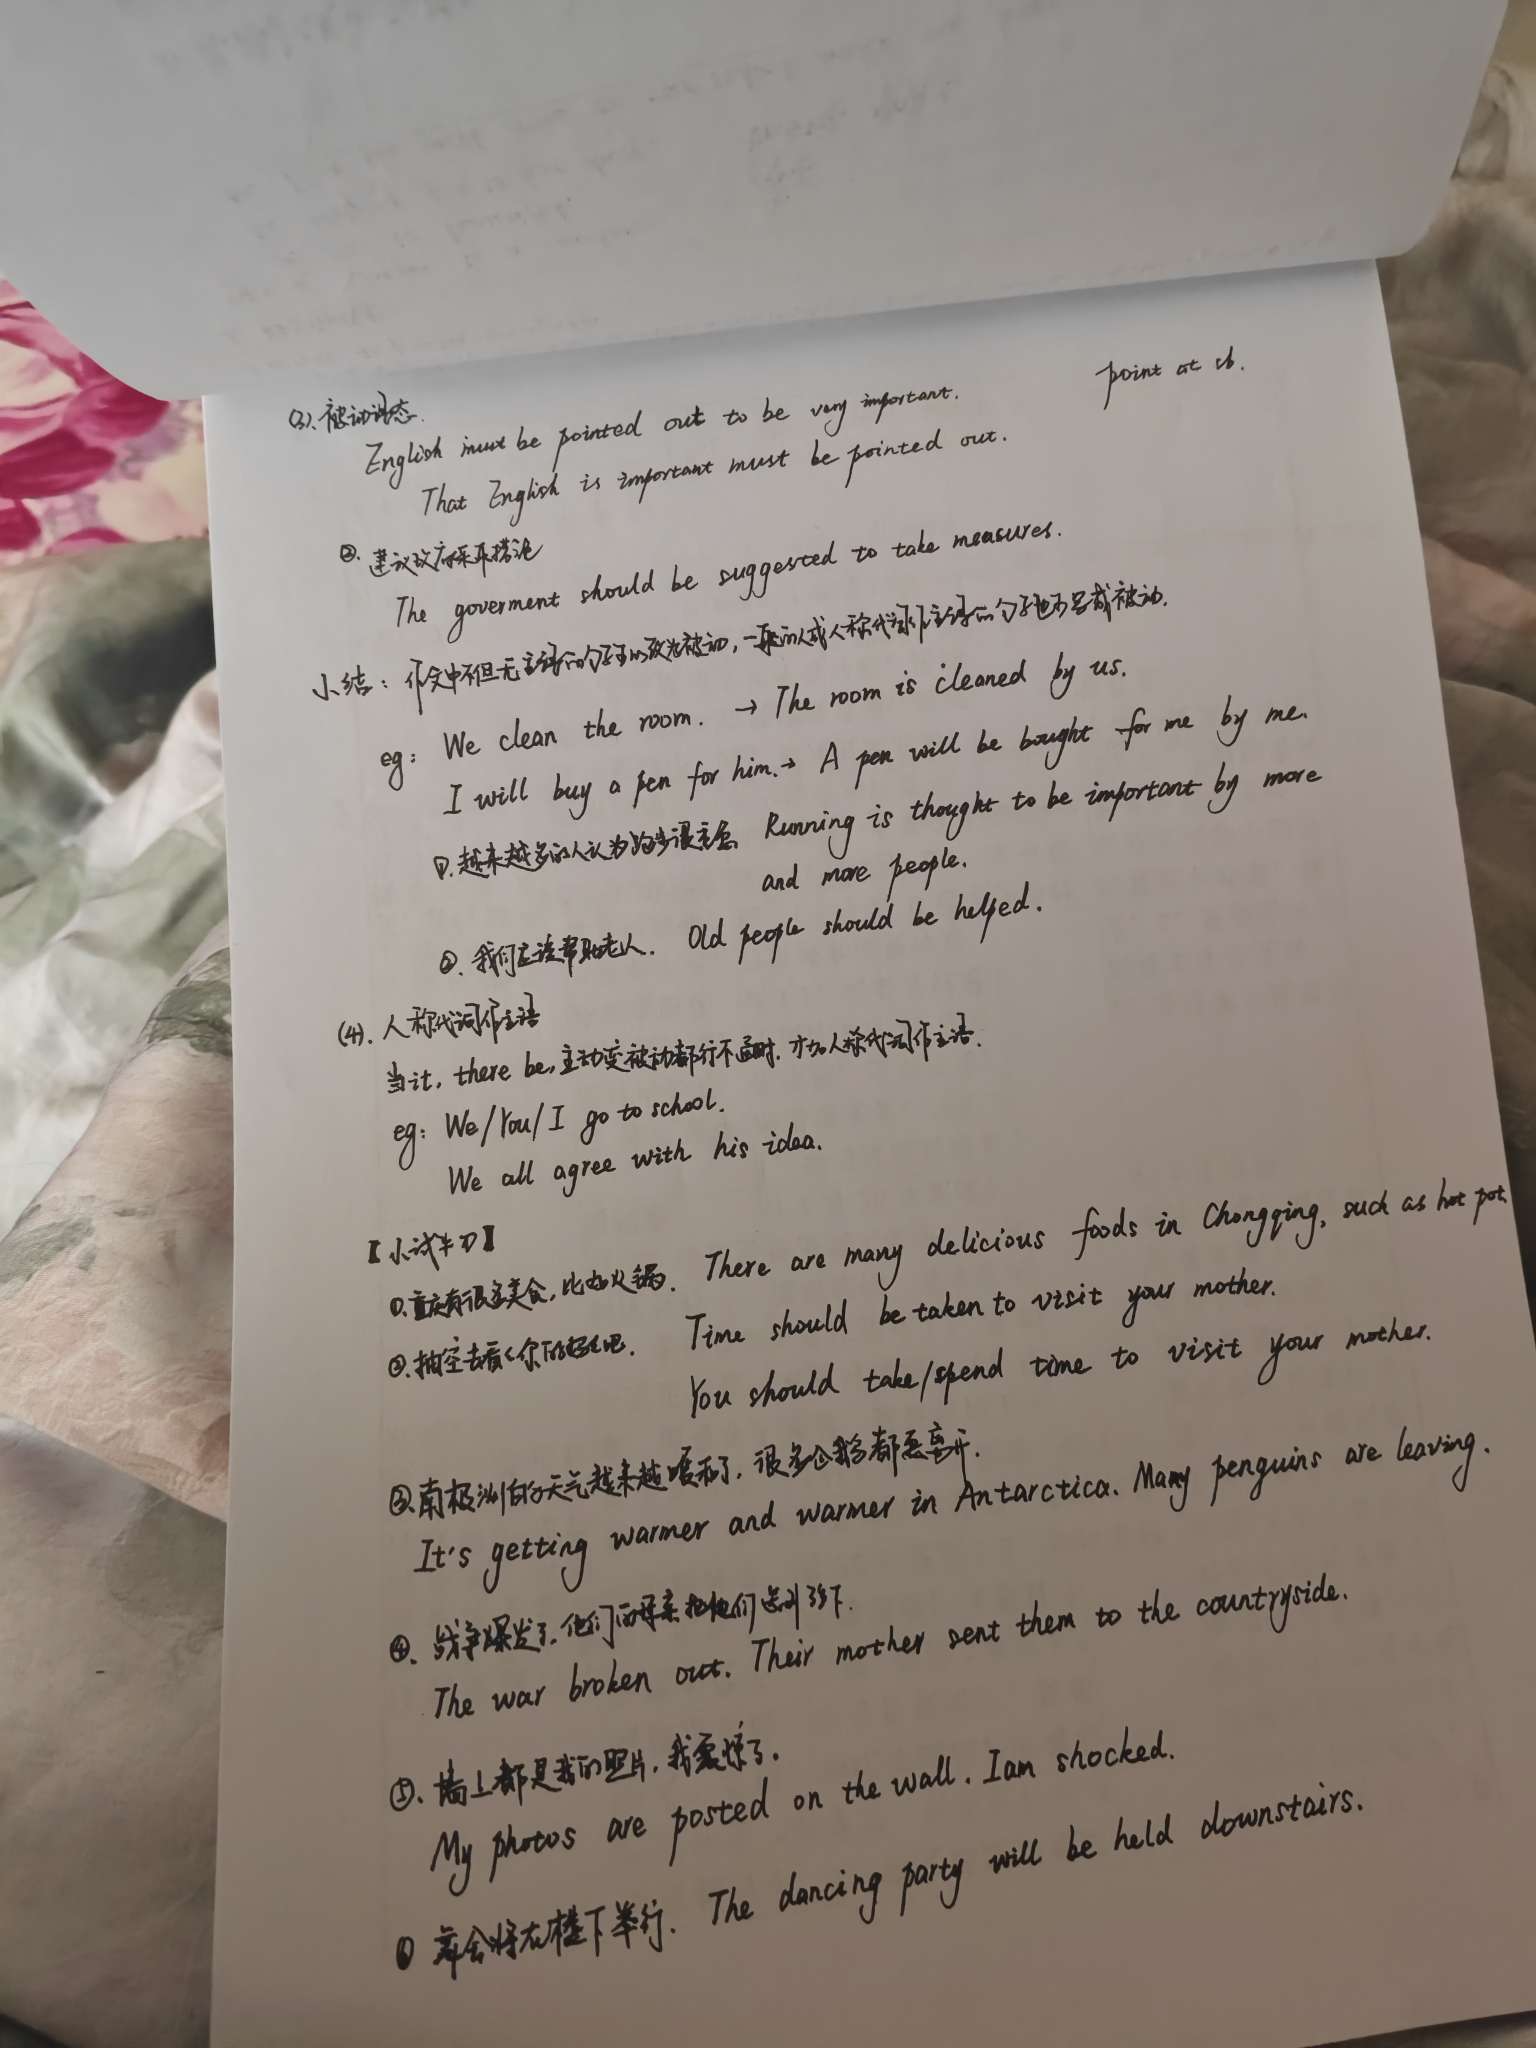 (3). 被动语态.
English must be pointed out to be very important. point at sb.
That English is important must be pointed out.
②. 建议政府采取措施
The goverment should be suggested to take measures.
小结: 作文中不但无主语的句子可以改为被动, 一般的人或人称代词作主语的句子也可写成被动.
eg: We clean the room. → The room is cleaned by us.
I will buy a pen for him. → A pen will be bought for me by me.
①. 越来越多的人认为跑步很重要. Running is thought to be important by more
and more people.
②. 我们应该帮助老人. Old people should be helped.
(4). 人称代词作主语
当it, there be, 主动变被动都行不通时, 才加人称代词作主语.
eg: We/You/I go to school.
We all agree with his idea.
【小试牛刀】
①. 重庆有很多美食, 比如火锅. There are many delicious foods in Chongqing, such as hot pot.
②. 抽空去看看你的妈妈吧. Time should be taken to visit your mother.
You should take/spend time to visit your mother.
③. 南极洲的天气越来越暖和了, 很多企鹅都要离开.
It's getting warmer and warmer in Antarctica. Many penguins are leaving.
④. 战争爆发了, 他们的母亲把他们送到乡下.
The war broken out. Their mother sent them to the countryside.
⑤. 墙上都是我的照片, 我震惊了.
My photos are posted on the wall. I am shocked.
⑥ 舞会将在楼下举行. The dancing party will be held downstairs.